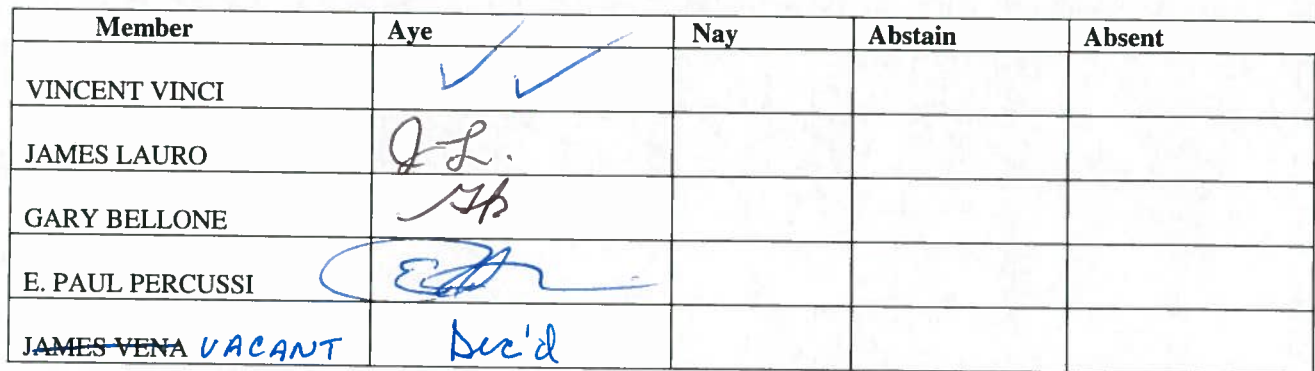 Member Aye Nay Abstain Absent
VINCENT VINCI
JAMES LAURO J L.
GARY BELLONE
E. PAUL PERCUSSI
JAMES VENA VACANT Dec'd